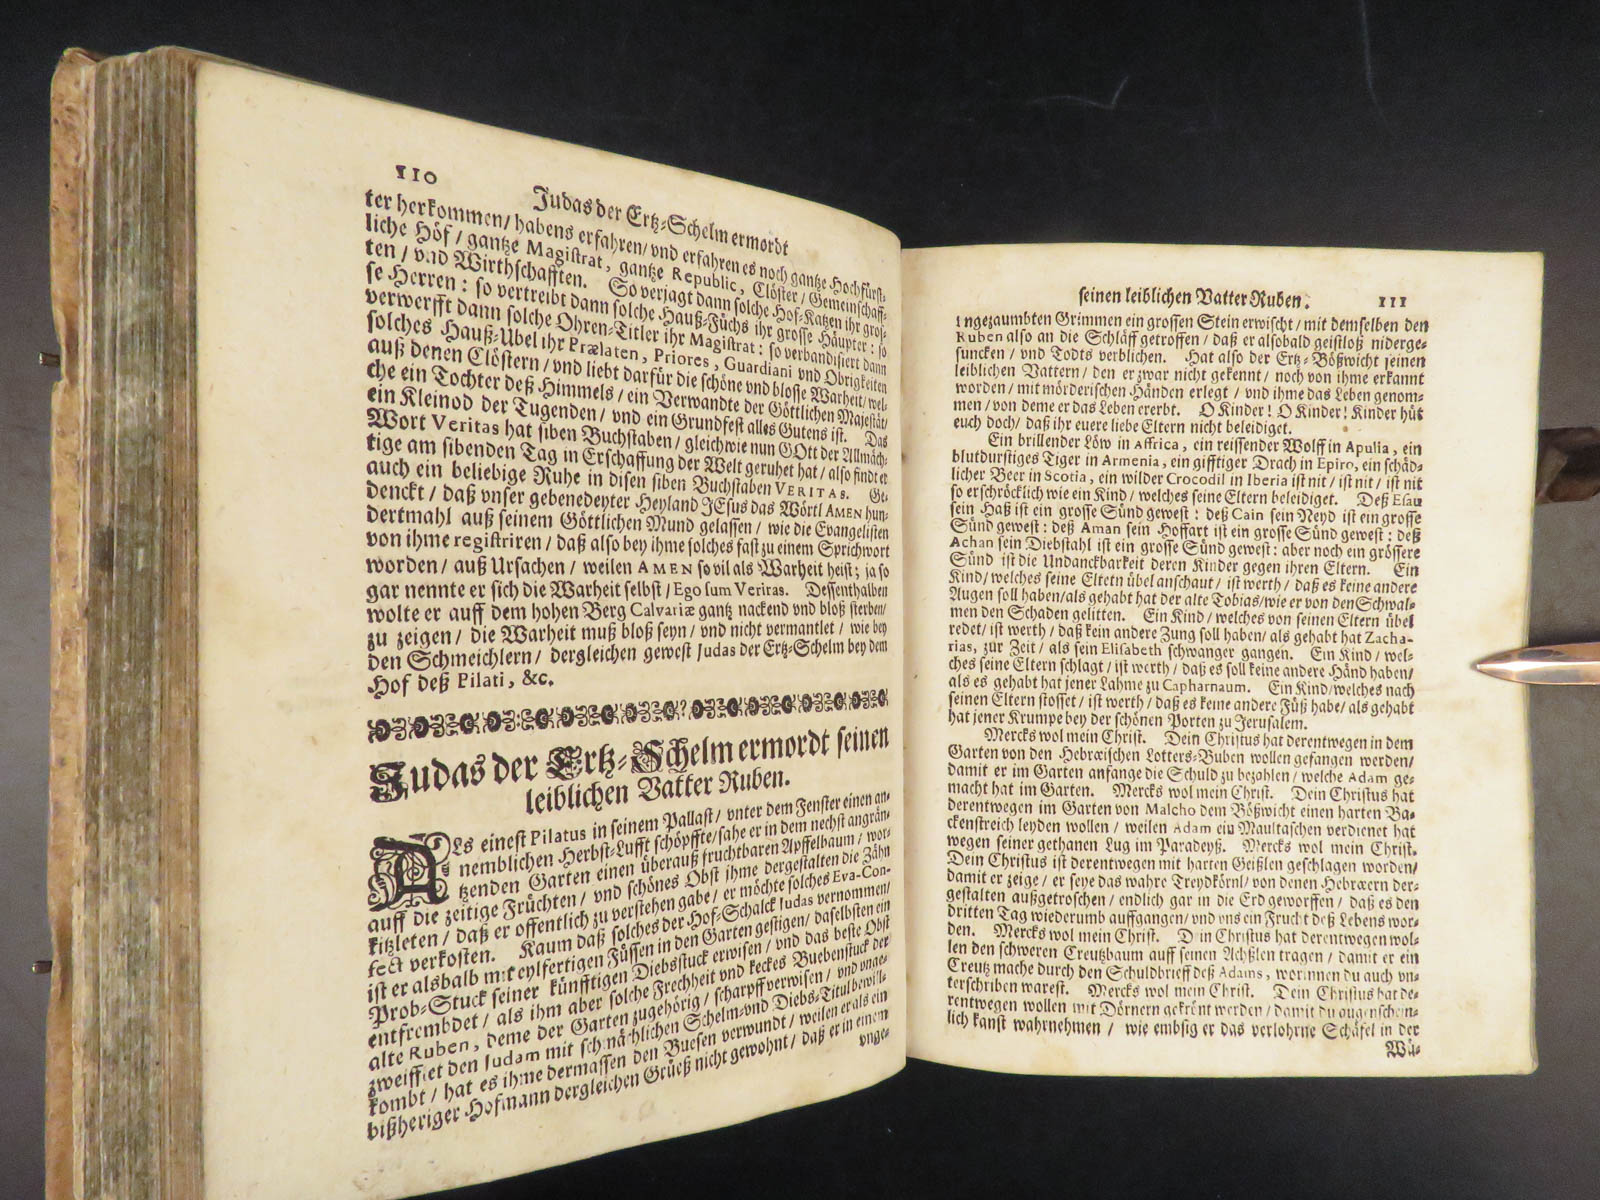 110
Judas der Ertz-Schelm ermordt
ter herkommen/ habens erfahren/ vnd erfahren es noch gantze Hochfürst-
liche Höf/ gantze Magistrat, gantze Republic, Clöster/ Gemeinschaff-
ten/ vnd Wirthschafften. So verjagt dann solche Hof-Katzen ihr gros-
se Herren: so vertreibt dann solche Hauß-Füchs ihr grosse Häupter: so
verwerfft dann solche Ohren-Titler ihr Magistrat: so verbandisiert dann
solches Hauß-Ubel ihr Prælaten, Priores, Guardiani vnd Obrigkeiten
auß denen Clöstern/ vnd liebt darfür die schöne vnd blosse Warheit/ wel-
che ein Tochter deß Himmels/ ein Verwandte der Göttlichen Majestät/
ein Kleinod der Tugenden/ vnd ein Grundfest alles Gutens ist. Das
Wort Veritas hat siben Buchstaben/ gleichwie nun GOtt der Allmäch-
tige am sibenden Tag in Erschaffung der Welt geruhet hat/ also findet er
auch ein beliebige Ruhe in disen siben Buchstaben VERITAS. Ge-
denckt/ daß vnser gebenedeyter Heyland JEsus das Wörtl AMEN hun-
dertmahl auß seinem Göttlichen Mund gelassen/ wie die Evangelisten
von ihme registriren/ daß also bey ihme solches fast zu einem Sprichwort
worden/ auß Ursachen/ weilen AMEN so vil als Warheit heist; ja so
gar nennte er sich die Warheit selbst/ Ego sum Veritas. Dessenthalben
wolte er auff dem hohen Berg Calvariæ gantz nackend vnd bloß sterben/
zu zeigen/ die Warheit muß bloß seyn/ vnd nicht vermantlet/ wie bey
den Schmeichlern/ dergleichen gewest Judas der Ertz-Schelm bey dem
Hof deß Pilati, &c.
Judas der Ertz-Schelm ermordt seinen
leiblichen Vatter Ruben.
ALs einest Pilatus in seinem Pallast/ vnter dem Fenster einen an-
nemblichen Herbst-Lufft schöpffte/ sahe er in dem nechst angrän-
tzenden Garten einen überauß fruchtbaren Apffelbaum/ wor-
auff die zeitige Früchten/ vnd schönes Obst ihme dergestalten die Zähn
kitzleten/ daß er offentlich zu verstehen gabe/ er möchte solches Eva-Con-
fect verkosten. Kaum daß solches der Hof-Schalck Judas vernommen/
ist er alsbald mit eylfertigen Füssen in den Garten gestigen/ daselbsten ein
Prob-Stuck seiner künfftigen Diebsstuck erwisen/ vnd das beste Obst
entfrembdet/ als ihm aber solche Frechheit vnd keckes Buebenstuck der
alte Ruben, deme der Garten zugehörig/ scharpff verwisen/ vnd vnge-
zweifflet den Judam mit schmächlichen Schelm- vnd Diebs-Titul bewill-
kombt/ hat es ihme dermassen den Buesen verwundt/ weilen er als ein
bißheriger Hofmann dergleichen Grüeß nicht gewohnt/ daß er in einem
vnge-
seinen leiblichen Vatter Ruben. 111
ngezaumbten Grimmen ein grossen Stein erwischt/ mit demselben den
Ruben also an die Schläff getroffen/ daß er alsobald geistloß niderge-
suncken/ vnd Todts verblichen. Hat also der Ertz-Bößwicht seinen
leiblichen Vattern/ den er zwar nicht gekennt/ noch von ihme erkannt
worden/ mit mörderischen Händen erlegt/ vnd ihme das Leben genom-
men/ von deme er das Leben ererbt. O Kinder! O Kinder! Kinder hüt
euch doch/ daß ihr euere liebe Eltern nicht beleidiget.
Ein brillender Löw in Affrica, ein reissender Wolff in Apulia, ein
blutdurstiges Tiger in Armenia, ein gifftiger Drach in Epiro, ein schäd-
licher Beer in Scotia, ein wilder Crocodil in Iberia ist nit/ ist nit/ ist nit
so erschröcklich wie ein Kind/ welches seine Eltern beleidiget. Deß Esau
sein Haß ist ein grosse Sünd gewest: deß Cain sein Neyd ist ein grosse
Sünd gewest: deß Aman sein Hoffart ist ein grosse Sünd gewest: deß
Achan sein Diebstahl ist ein grosse Sünd gewest: aber noch ein grössere
Sünd ist die Undanckbarkeit deren Kinder gegen ihren Eltern. Ein
Kind/ welches seine Eltetn übel anschaut/ ist werth/ daß es keine andere
Augen soll haben/ als gehabt hat der alte Tobias/ wie er von den Schwal-
men den Schaden gelitten. Ein Kind/ welches von seinen Eltern übel
redet/ ist werth/ daß kein andere Zung soll haben/ als gehabt hat Zacha-
rias, zur Zeit/ als sein Elisabeth schwanger gangen. Ein Kind/ wel-
ches seine Eltern schlagt/ ist werth/ daß es soll keine andere Händ haben/
als es gehabt hat jener Lahme zu Capharnaum. Ein Kind/ welches nach
seinen Eltern stosset/ ist werth/ daß es keine andere Füß habe/ als gehabt
hat jener Krumpe bey der schönen Porten zu Jerusalem.
Mercks wol mein Christ. Dein Christus hat derentwegen in dem
Garten von den Hebræischen Lotters-Buben wollen gefangen werden/
damit er im Garten anfange die Schuld zu bezahlen/ welche Adam ge-
macht hat im Garten. Mercks wol mein Christ. Dein Christus hat
derentwegen im Garten von Malcho dem Bößwicht einen harten Ba-
ckenstreich leyden wollen/ weilen Adam ein Maultaschen verdienet hat
wegen seiner gethanen Lug im Paradeyß. Mercks wol mein Christ.
Dein Christus ist derentwegen mit harten Geißlen geschlagen worden/
damit er zeige/ er seye das wahre Treydkörnl/ von denen Hebræern der-
gestalten außgetroschen/ endlich gar in die Erd geworffen/ daß es den
dritten Tag wiederumb auffgangen/ vnd vns ein Frucht deß Lebens wor-
den. Mercks wol mein Christ. Dein Christus hat derentwegen wol-
len den schweren Creutzbaum auff seinen Achßlen tragen/ damit er ein
Creutz mache durch den Schuldbrieff deß Adams, worinnen du auch vn-
terschriben warest. Mercks wol mein Christ. Dein Christus hat de-
rentwegen wollen mit Dörnern gekrönt werden/ damit du augenschein-
lich kanst wahrnehmen/ wie embsig er das verlohrne Schäfel in der
Wü-